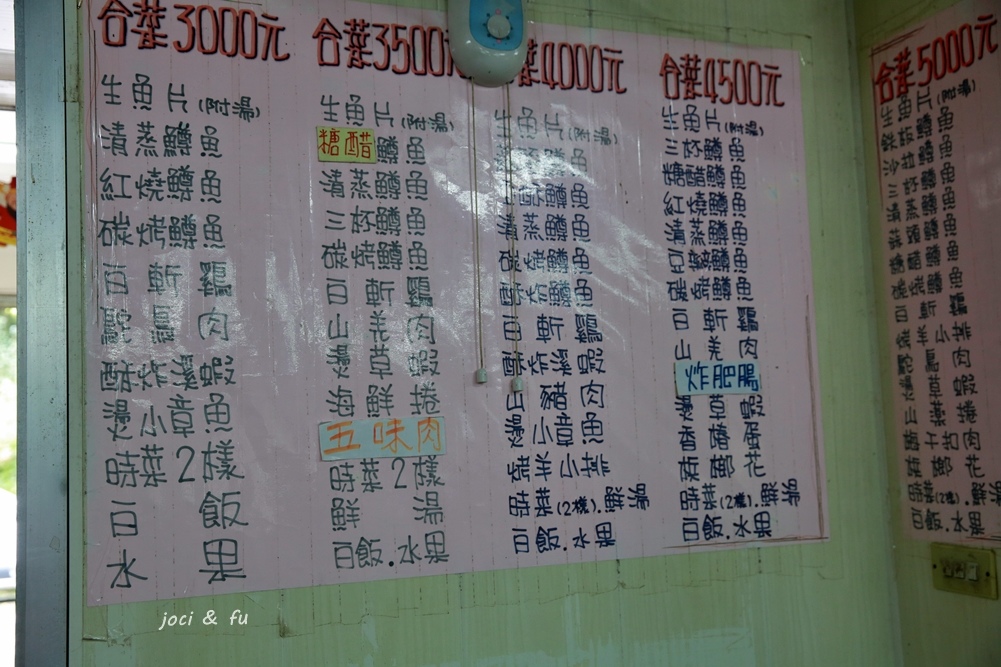 合菜3000元
生魚片(附湯)
清蒸鱒魚
紅燒鱒魚
碳烤鱒魚
白斬鷄
鴕鳥肉
酥炸溪蝦
燙小章魚
時菜2樣
白飯
水果
合菜3500元
生魚片(附湯)
糖醋鱒魚
清蒸鱒魚
三杯鱒魚
碳烤鱒魚
白斬鷄
山羌肉
燙草蝦
海鮮捲
五味肉
時菜2樣
鮮湯
白飯.水果
菜4000元
生魚片(附湯)
魚
鱒魚
清蒸鱒魚
碳烤鱒魚
酥炸鱒魚
白斬鷄
酥炸溪蝦
山豬肉
燙小章魚
烤羊小排
時菜(2樣).鮮湯
白飯.水果
合菜4500元
生魚片(附湯)
三杯鱒魚
糖醋鱒魚
紅燒鱒魚
清蒸鱒魚
豆瓣鱒魚
碳烤鱒魚
白斬鷄
山羌肉
炸肥腸
燙草蝦
香椿蛋
檳榔花
時菜(2樣).鮮湯
白飯.水果
合菜5000元
生魚片(附湯)
鉄板鱒魚
沙拉鱒魚
三杯鱒魚
清蒸鱒魚
蒜頭鱒魚
糖醋鱒魚
碳烤鱒魚
白斬鷄
烤羊小排
鴕鳥肉
燙草蝦
山藥捲
梅干扣肉
檳榔花
時菜(2樣).鮮湯
白飯.水果
joci & fu